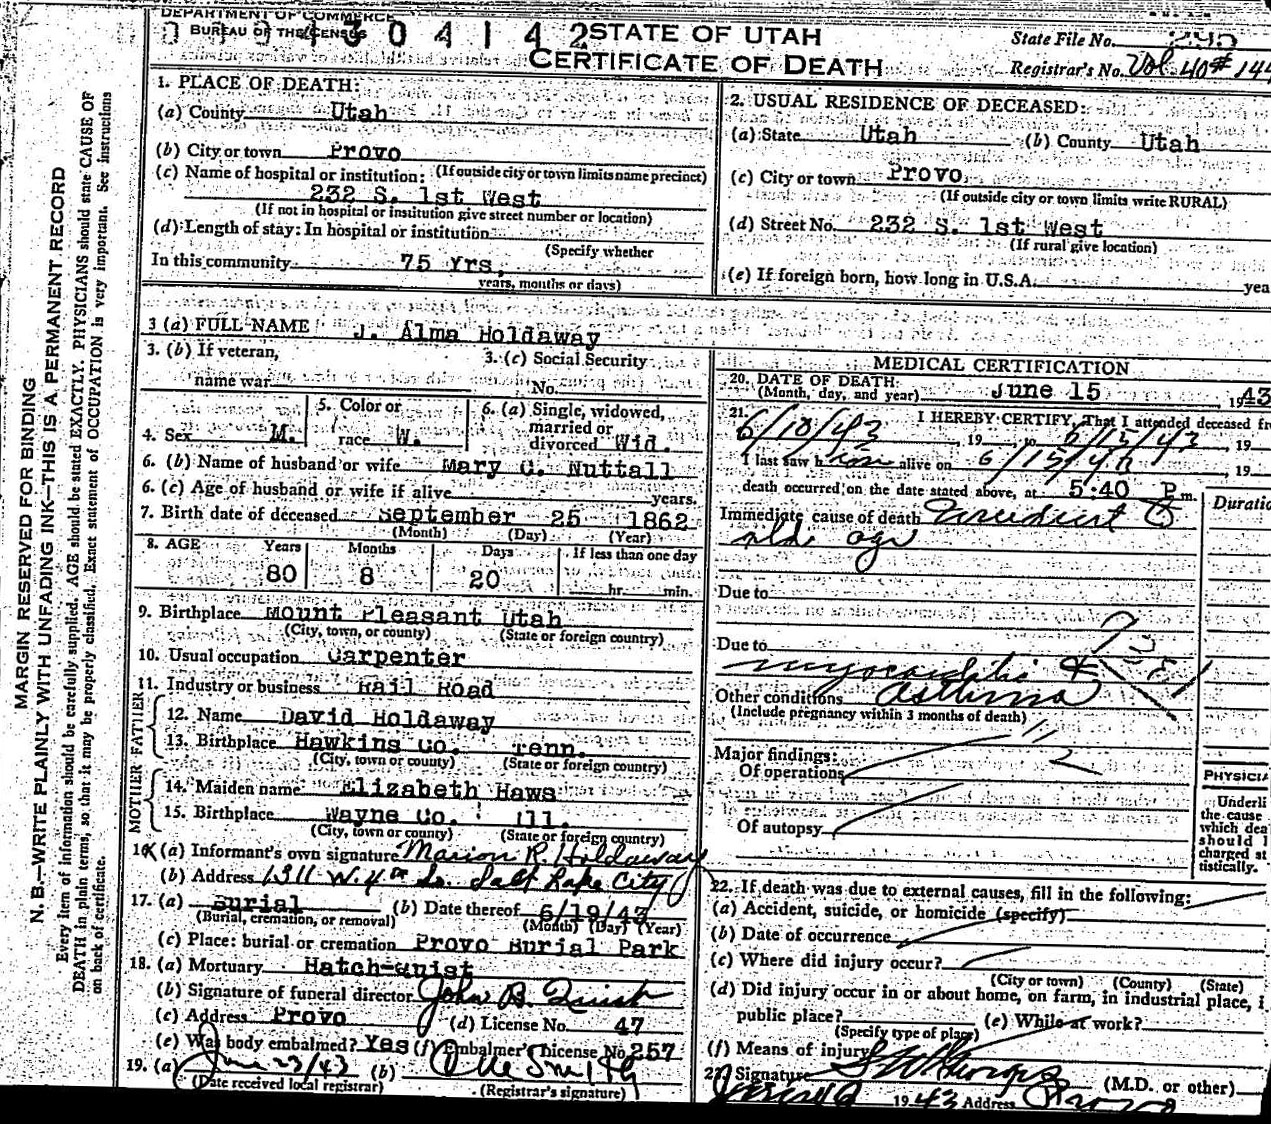 DEPARTMENT OF COMMERCE
BUREAU OF THE CENSUS
430414 2 STATE OF UTAH
CERTIFICATE OF DEATH
State File No. 295
Registrar's No. Vol 40 # 144
MARGIN RESERVED FOR BINDING
N. B.—WRITE PLAINLY WITH UNFADING INK—THIS IS A PERMANENT RECORD
Every item of information should be carefully supplied. AGE should be stated EXACTLY. PHYSICIANS should state CAUSE OF
DEATH in plain terms, so that it may be properly classified. Exact statement of OCCUPATION is very important. See instructions
on back of certificate.
1. PLACE OF DEATH:
(a) County Utah
(b) City or town Provo
(If outside city or town limits name precinct)
(c) Name of hospital or institution:
232 S. 1st West
(If not in hospital or institution give street number or location)
(d) Length of stay: In hospital or institution
(Specify whether
In this community 75 Yrs.
years, months or days)
2. USUAL RESIDENCE OF DECEASED:
(a) State Utah (b) County Utah
(c) City or town Provo
(If outside city or town limits write RURAL)
(d) Street No. 232 S. 1st West
(If rural give location)
(e) If foreign born, how long in U.S.A. yea
3 (a) FULL NAME J. Alma Holdaway
3. (b) If veteran,
name war
3. (c) Social Security
No.
4. Sex M.
5. Color or
race W.
6. (a) Single, widowed,
married or
divorced Wid.
6. (b) Name of husband or wife Mary C. Nuttall
6. (c) Age of husband or wife if alive years.
7. Birth date of deceased September 25 1862
(Month) (Day) (Year)
8. AGE Years Months Days If less than one day
80 8 20 hr. min.
9. Birthplace Mount Pleasant Utah
(City, town, or county) (State or foreign country)
10. Usual occupation Carpenter
11. Industry or business Rail Road
FATHER
12. Name David Holdaway
13. Birthplace Hawkins Co. Tenn.
(City, town or county) (State or foreign country)
MOTHER
14. Maiden name Elizabeth Haws
15. Birthplace Wayne Co. Ill.
(City, town or county) (State or foreign country)
16. (a) Informant's own signature Marion R. Holdaway
(b) Address 1311 W. 4th So. Salt Lake City
17. (a) Burial (b) Date thereof 6/19/43
(Burial, cremation, or removal) (Month) (Day) (Year)
(c) Place: burial or cremation Provo Burial Park
18. (a) Mortuary Hatch-Quist
(b) Signature of funeral director John B. Quist
(c) Address Provo (d) License No. 47
(e) Was body embalmed? Yes (f) Embalmer's license No. 257
19. (a) June 23/43 (b)
(Date received local registrar) (Registrar's signature)
MEDICAL CERTIFICATION
20. DATE OF DEATH:
(Month, day, and year) June 15 1943
21. I HEREBY CERTIFY, That I attended deceased fr
6/10/43, 19 to 6/15/43 19
I last saw him alive on 6/15/43 19
death occurred on the date stated above, at 5:40 P m.
Duratio
Immediate cause of death
old age
Due to
Due to
myocarditis &
Other conditions Asthma
(Include pregnancy within 3 months of death)
Major findings:
Of operations
Of autopsy
PHYSICIA
Underli
the cause
which dea
should l
charged st
tistically.
22. If death was due to external causes, fill in the following:
(a) Accident, suicide, or homicide (specify)
(b) Date of occurrence
(c) Where did injury occur?
(City or town) (County) (State)
(d) Did injury occur in or about home, on farm, in industrial place, i
public place? (e) While at work?
(Specify type of place)
(f) Means of injury
23. Signature (M.D. or other)
1943 Address Provo